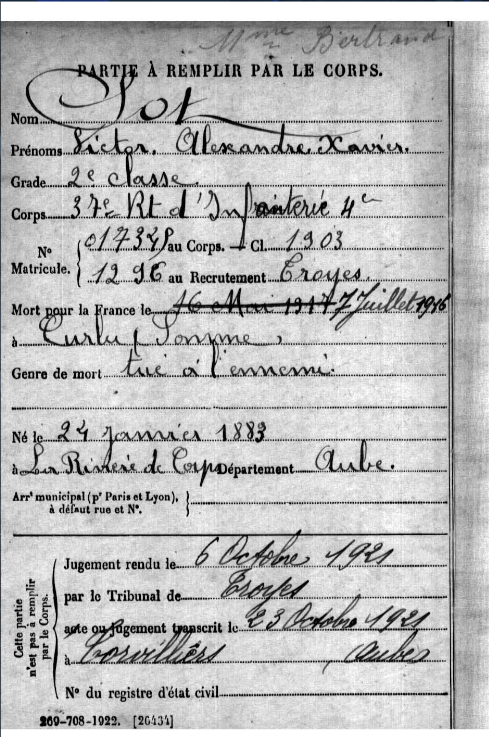 Mme Bertrand
PARTIE À REMPLIR PAR LE CORPS.
Nom Sot
Prénoms Victor. Alexandre Xavier.
Grade 2e classe
Corps 37e Rt d'Infanterie 4e
No Matricule. { 01737 au Corps. — Cl. 1903
1296 au Recrutement Troyes
Mort pour la France le 16 Mai 1917 7 Juillet 1916
à Curlu, Somme,
Genre de mort tué à l'ennemi.
Né le 24 janvier 1883
à La Rivière de Corps Département Aube.
Arrt municipal (pr Paris et Lyon), }
à défaut rue et No.
Cette partie n'est pas à remplir par le Corps.
Jugement rendu le 6 Octobre 1921
par le Tribunal de Troyes
acte ou jugement transcrit le 23 Octobre 1921
à Torvilliers, Aube
No du registre d'état civil
269-708-1922. [26434]